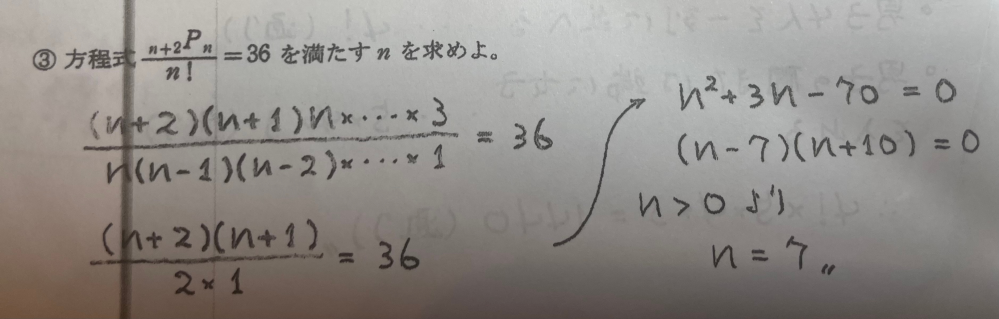 ③ 方程式 n+2Pn/n! = 36 を満たす n を求めよ。
(n+2)(n+1)n×…×3 / n(n-1)(n-2)×…×1 = 36
(n+2)(n+1) / 2×1 = 36
n²+3n-70=0
(n-7)(n+10)=0
n>0 より
n=7〃